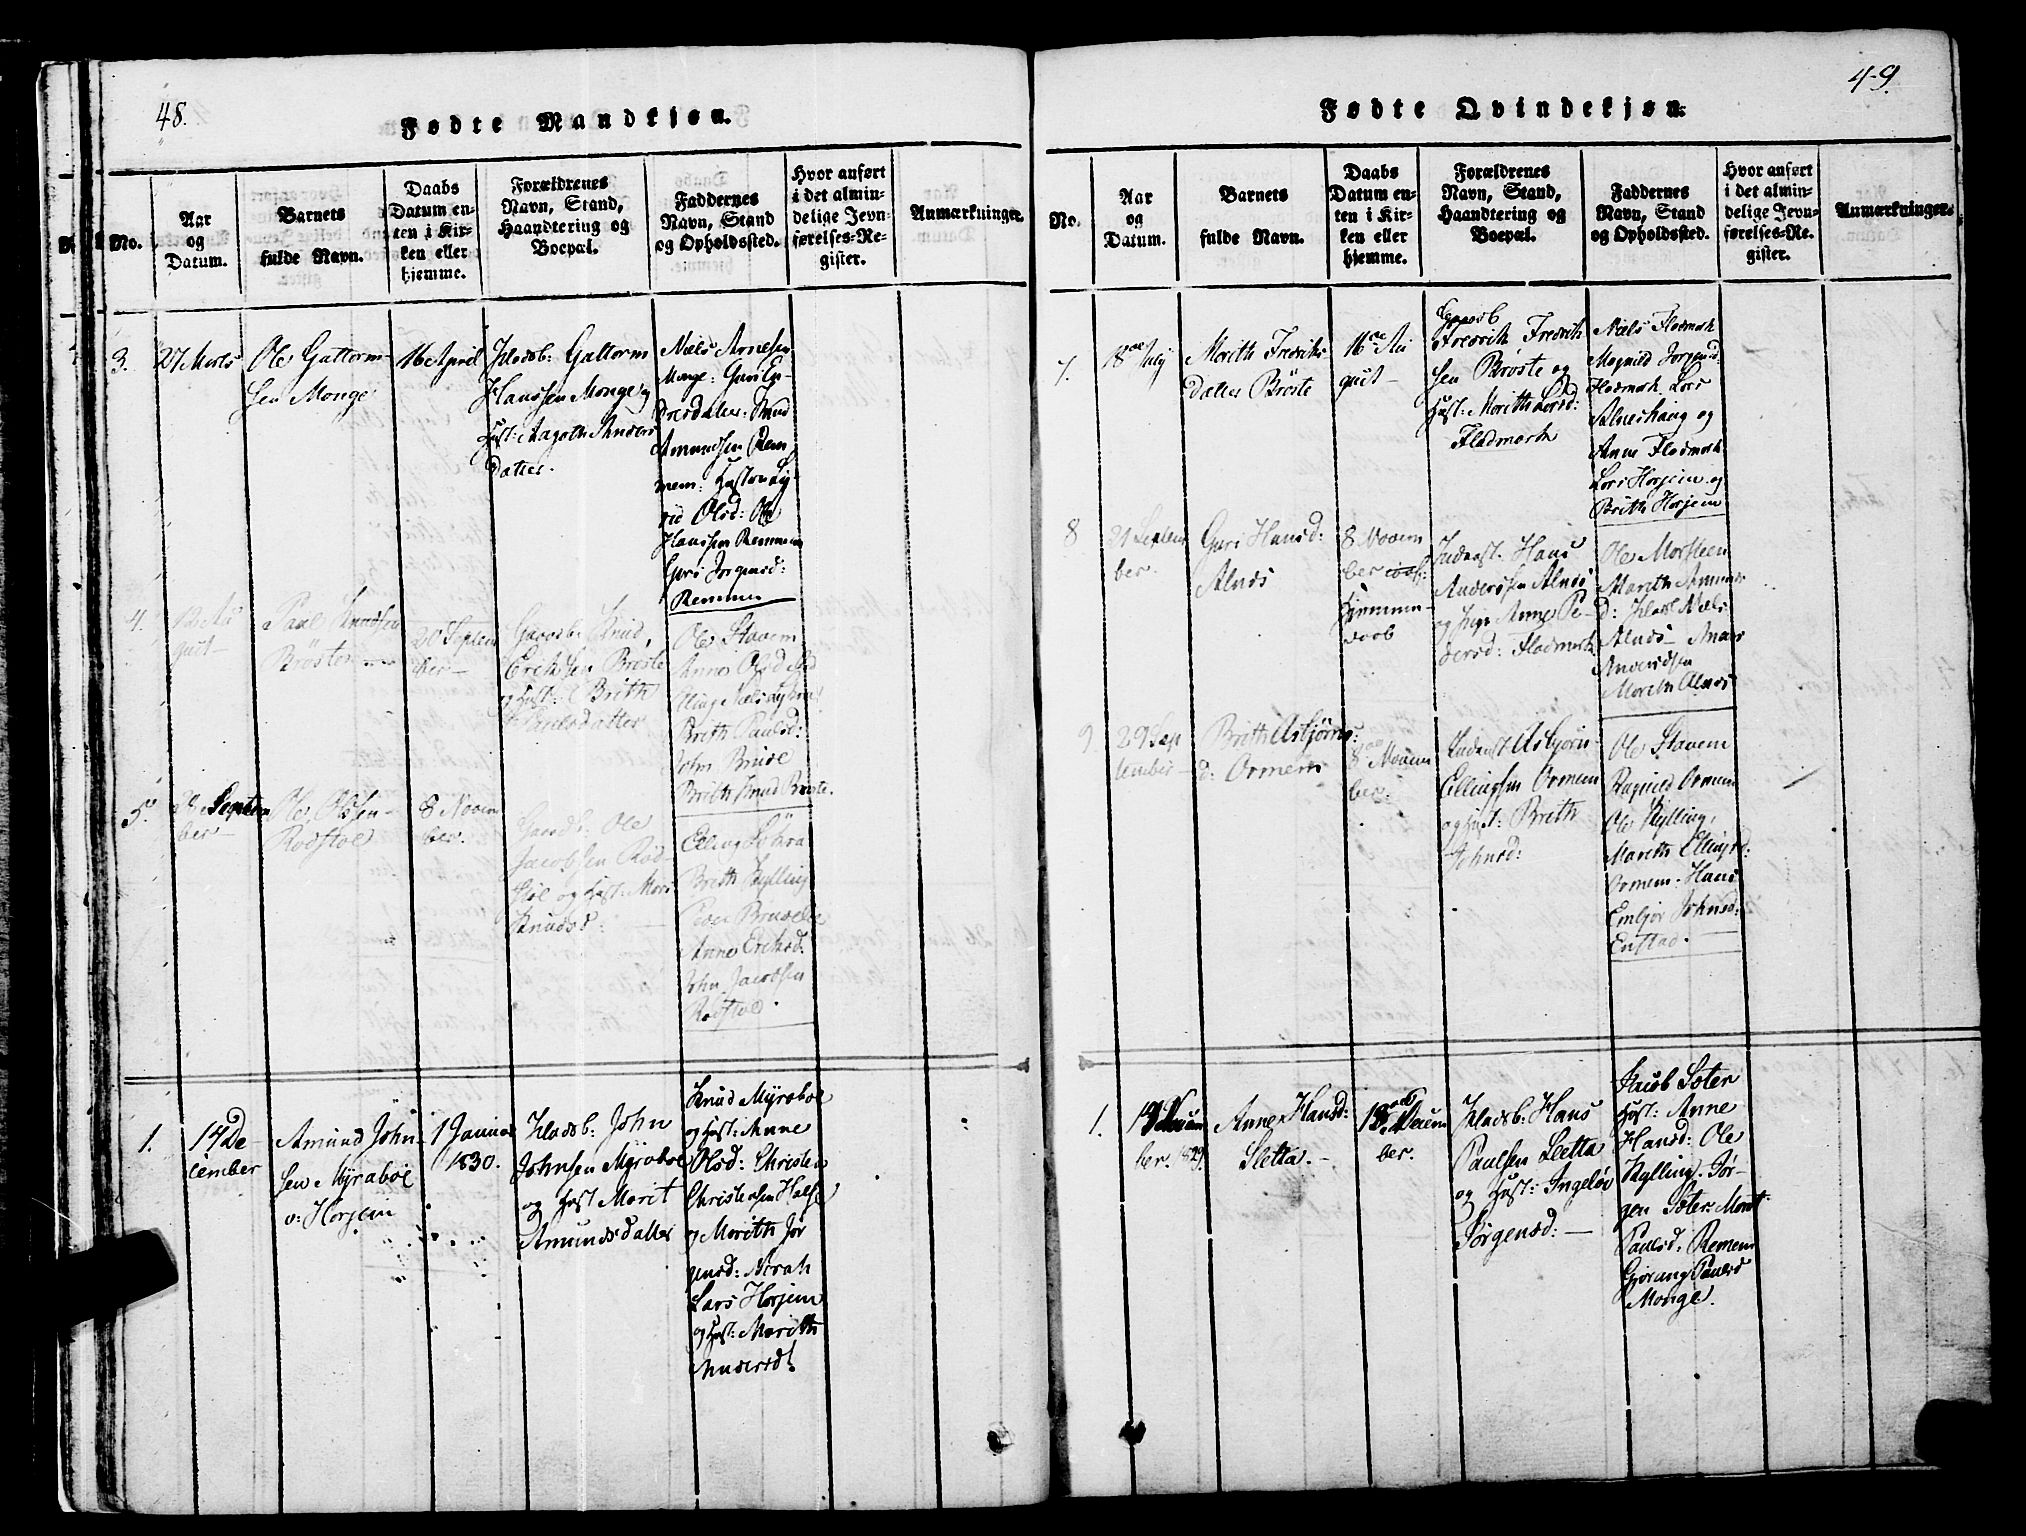 48.
Fødte Mandkjøn.
No.
Aar
og
Datum.
Barnets
fulde Navn.
Daabs
Datum en-
ten i Kir-
ken eller
hjemme.
Forældrenes
Navn, Stand,
Haandtering og
Boepæl.
Faddernes
Navn, Stand
og Opholdssted.
Hvor anført
i det almin-
delige Jevn-
førelses-Re-
gister.
Anmærkninger.
3.
27 Marts
Ole Guttorm-
sen Monge
16 April
Pladsb: Guttorm
Hanssen Monge og
Hust: Aagothe Anders
datter.
Niels Arnesen
Monge: Guri En-
dresdatter: Knud
Amundsen Rem
mem: Hustru Sy-
Olsd: Ole
Hanssen Remmem
Guri Jorgensd:
Remmem
4.
gust
Paul Knudsen
Brøste
20 Septem
ber
Gaardb: Knud
Erichsen Brøste
og Hust: Brith
Paulsdatter
Ole Stavem
Brith Paulsd:
John Brude
Brith Knud Brøste.
5.
Septem
ber
Ole Olsen
Rødstøl
8 Novem
ber.
Gaardb: Ole
Jacobsen Rød-
støl og Hust: Mari
Knudsd:
Elling
Brith Kylling
Peder
Anne Erichsd:
John Jacobsen
Rødstøl.
1.
14 De-
cember
Amund John
sen Myrabøe
v: Horjem
1 Januar
1830.
Pladsb: John
Johnsen Myrabøe
og Hust Marit
Amundsdatter
Knud Myrabøe
og Hust: Anne
Olsd: Christen
Christensen Halse
og Morith Jør
gensd:
Lars Horjem
og Hust: Morith
Andersd:
49.
Fødte Qvindekjøn.
No.
Aar
og
Datum.
Barnets
fulde Navn.
Daabs
Datum en-
ten i Kir-
ken eller
hjemme.
Forældrenes
Navn, Stand,
Haandtering og
Boepæl.
Faddernes
Navn, Stand
og Opholdssted.
Hvor anført
i det almin-
delige Jevn-
førelses-Re-
gister.
Anmærkninger.
7.
18de July
Morith Fredriks
datter Brøste
16de Au
gust
Gaardb
Fredrik Fredrik
sen Brøste og
Hust: Morith Larsd:
Fladmark
Niels Fladmark
Magnild Jorgensd:
Fladmark Lars
Alneshaug og
Anne Fladmark
Lars Horjem og
Brith Horjem
8
21 Septem
ber.
Guri Hansd:
Alnes
8 Novem
ber
hjemme-
døb
Inderst. Hans
Andersen Alnes
og Anne Pe-
dersd: Fladmark
Ole Morsteen
Marith
d: Niels
Alnes
Andersen
Morith Alnes
9.
29 Sep
tember
Brith Asbjørns-
d: Ormem
8de Novem
ber.
Inderst Asbjørn
Ellingsen Ormem
og Hust: Brith
Johnsd:
Ole Stavem
Ragnild Ormem
Ole Kylling,
Marith Ellingsd:
Ormem. Hans
Embjør Johnsd:
Enstad.
1.
ber. 1829.
Anne Hansd:
Sletta.
18de Decem
ber.
Pladsb: Hans
Paulsen Sletta
og Hust: Ingeløv
Jørgensd:
Jacob Soter
Hust: Anne
Hansd: Ole
Kylling. Jør-
gen Soter Marit
Paulsd: Remem
Gjørang Paulsd
Monge.